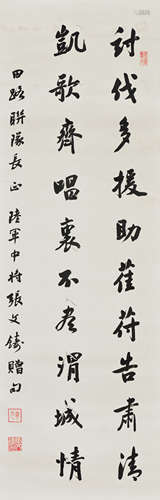 討伐多援助萑苻告肅清
凱歌齊唱裏不盡渭城情
田路聯隊長正 陸軍中將張文鑄贈句